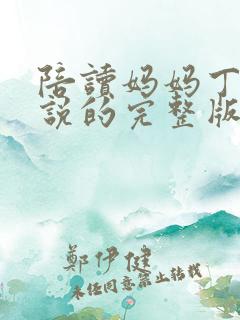 陪讀妈妈丁
說的完整版
鄭伊健
未经同意禁止转载